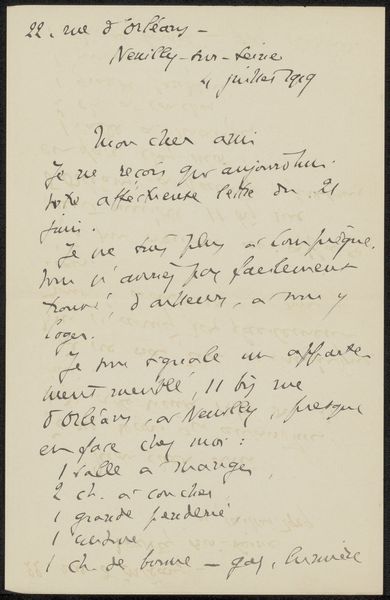 22, rue d'Orléans –
Neuilly-sur-Seine
4 juillet 1919
Mon cher ami
Je ne reçois qu'aujourd'hui
votre affectueuse lettre du 21
juin.
Je ne suis plus à Compiègne.
Vous n'auriez pas facilement
trouvé, d'ailleurs, à vous y
loger.
Je vous signale un apparte
ment meublé, 11 bis rue
d'Orléans, à Neuilly, presque
en face chez moi :
1 salle à manger,
2 ch. à coucher
1 grande penderie
1 cuisine
1 ch. de bonne – gaz, lumière